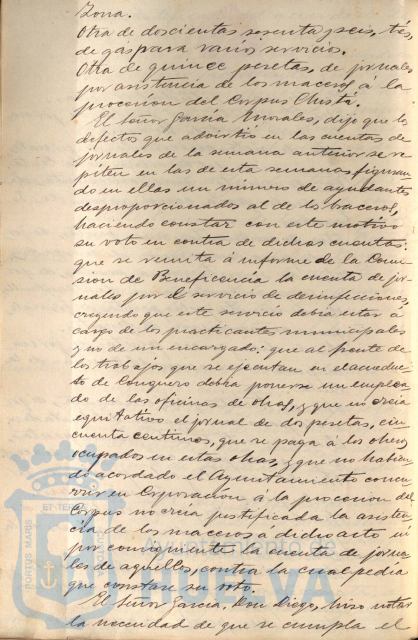 Zona.
Otra de doscientas sesenta y seis, tés,
de gas para varios servicios.
Otra de quince pesetas, de jornales
por asistencia de los maceros á la
procesion del Corpus Christi.
El Señor García Morales, dijo que los
defectos que advirtio en las cuentas de
jornales de la semana anterior se re
piten en las de esta semana figuran
do en ellas un número de ayudantes
desproporcionados al de los braceros,
haciendo constar con este motivo
su voto en contra de dichas cuentas:
que se remita á informe de la Comi
sion de Beneficencia la cuenta de jor
nales por el servicio de desinfecciones,
creyendo que este servicio debia estar á
cargo de los practicantes municipales
y no de un encargado: que al frente de
los trabajos que se ejecutan en el acueduc
to de Conquero debia ponerse un emplea
do de las oficinas de obras, y que no creia
equitativo el jornal de dos pesetas, cin
cuenta centimos, que se paga á los obreros
ocupados en estas obras, y que no habien
do acordado el Ayuntamiento concu
rrir en Corporacion á la procesion del
Corpus no creia justificada la asisten
cia de los maceros á dicho acto ni
por consiguiente la cuenta de jorna
les de aquellos, contra la cual pedia
que constase su voto.
El Señor García, Don Diego, hizo notar
la necesidad de que se cumpla el
PORTUS MARIS
ET TERRAE
AYUNTAMIENTO DE
HUELVA